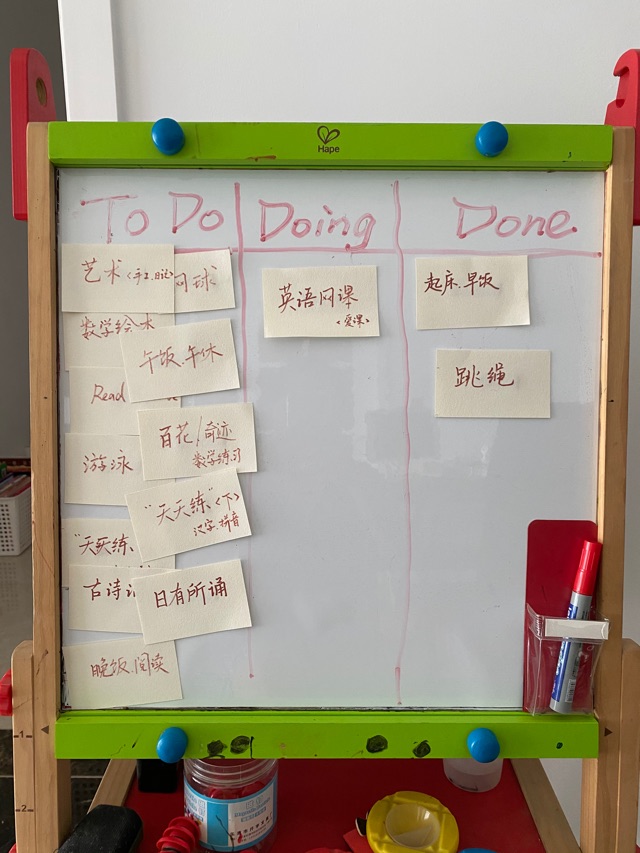 Hape
To Do
Doing
Done
艺术〈手工.日记〉
网球
数学绘本
午饭.午休
Read
百花/奇迹
数学练习
游泳
"天天练"〈下〉
汉字.拼音
"天天练
古诗
日有所诵
晚饭.阅读
英语网课
〈爱课〉
起床.早饭
跳绳
1
2